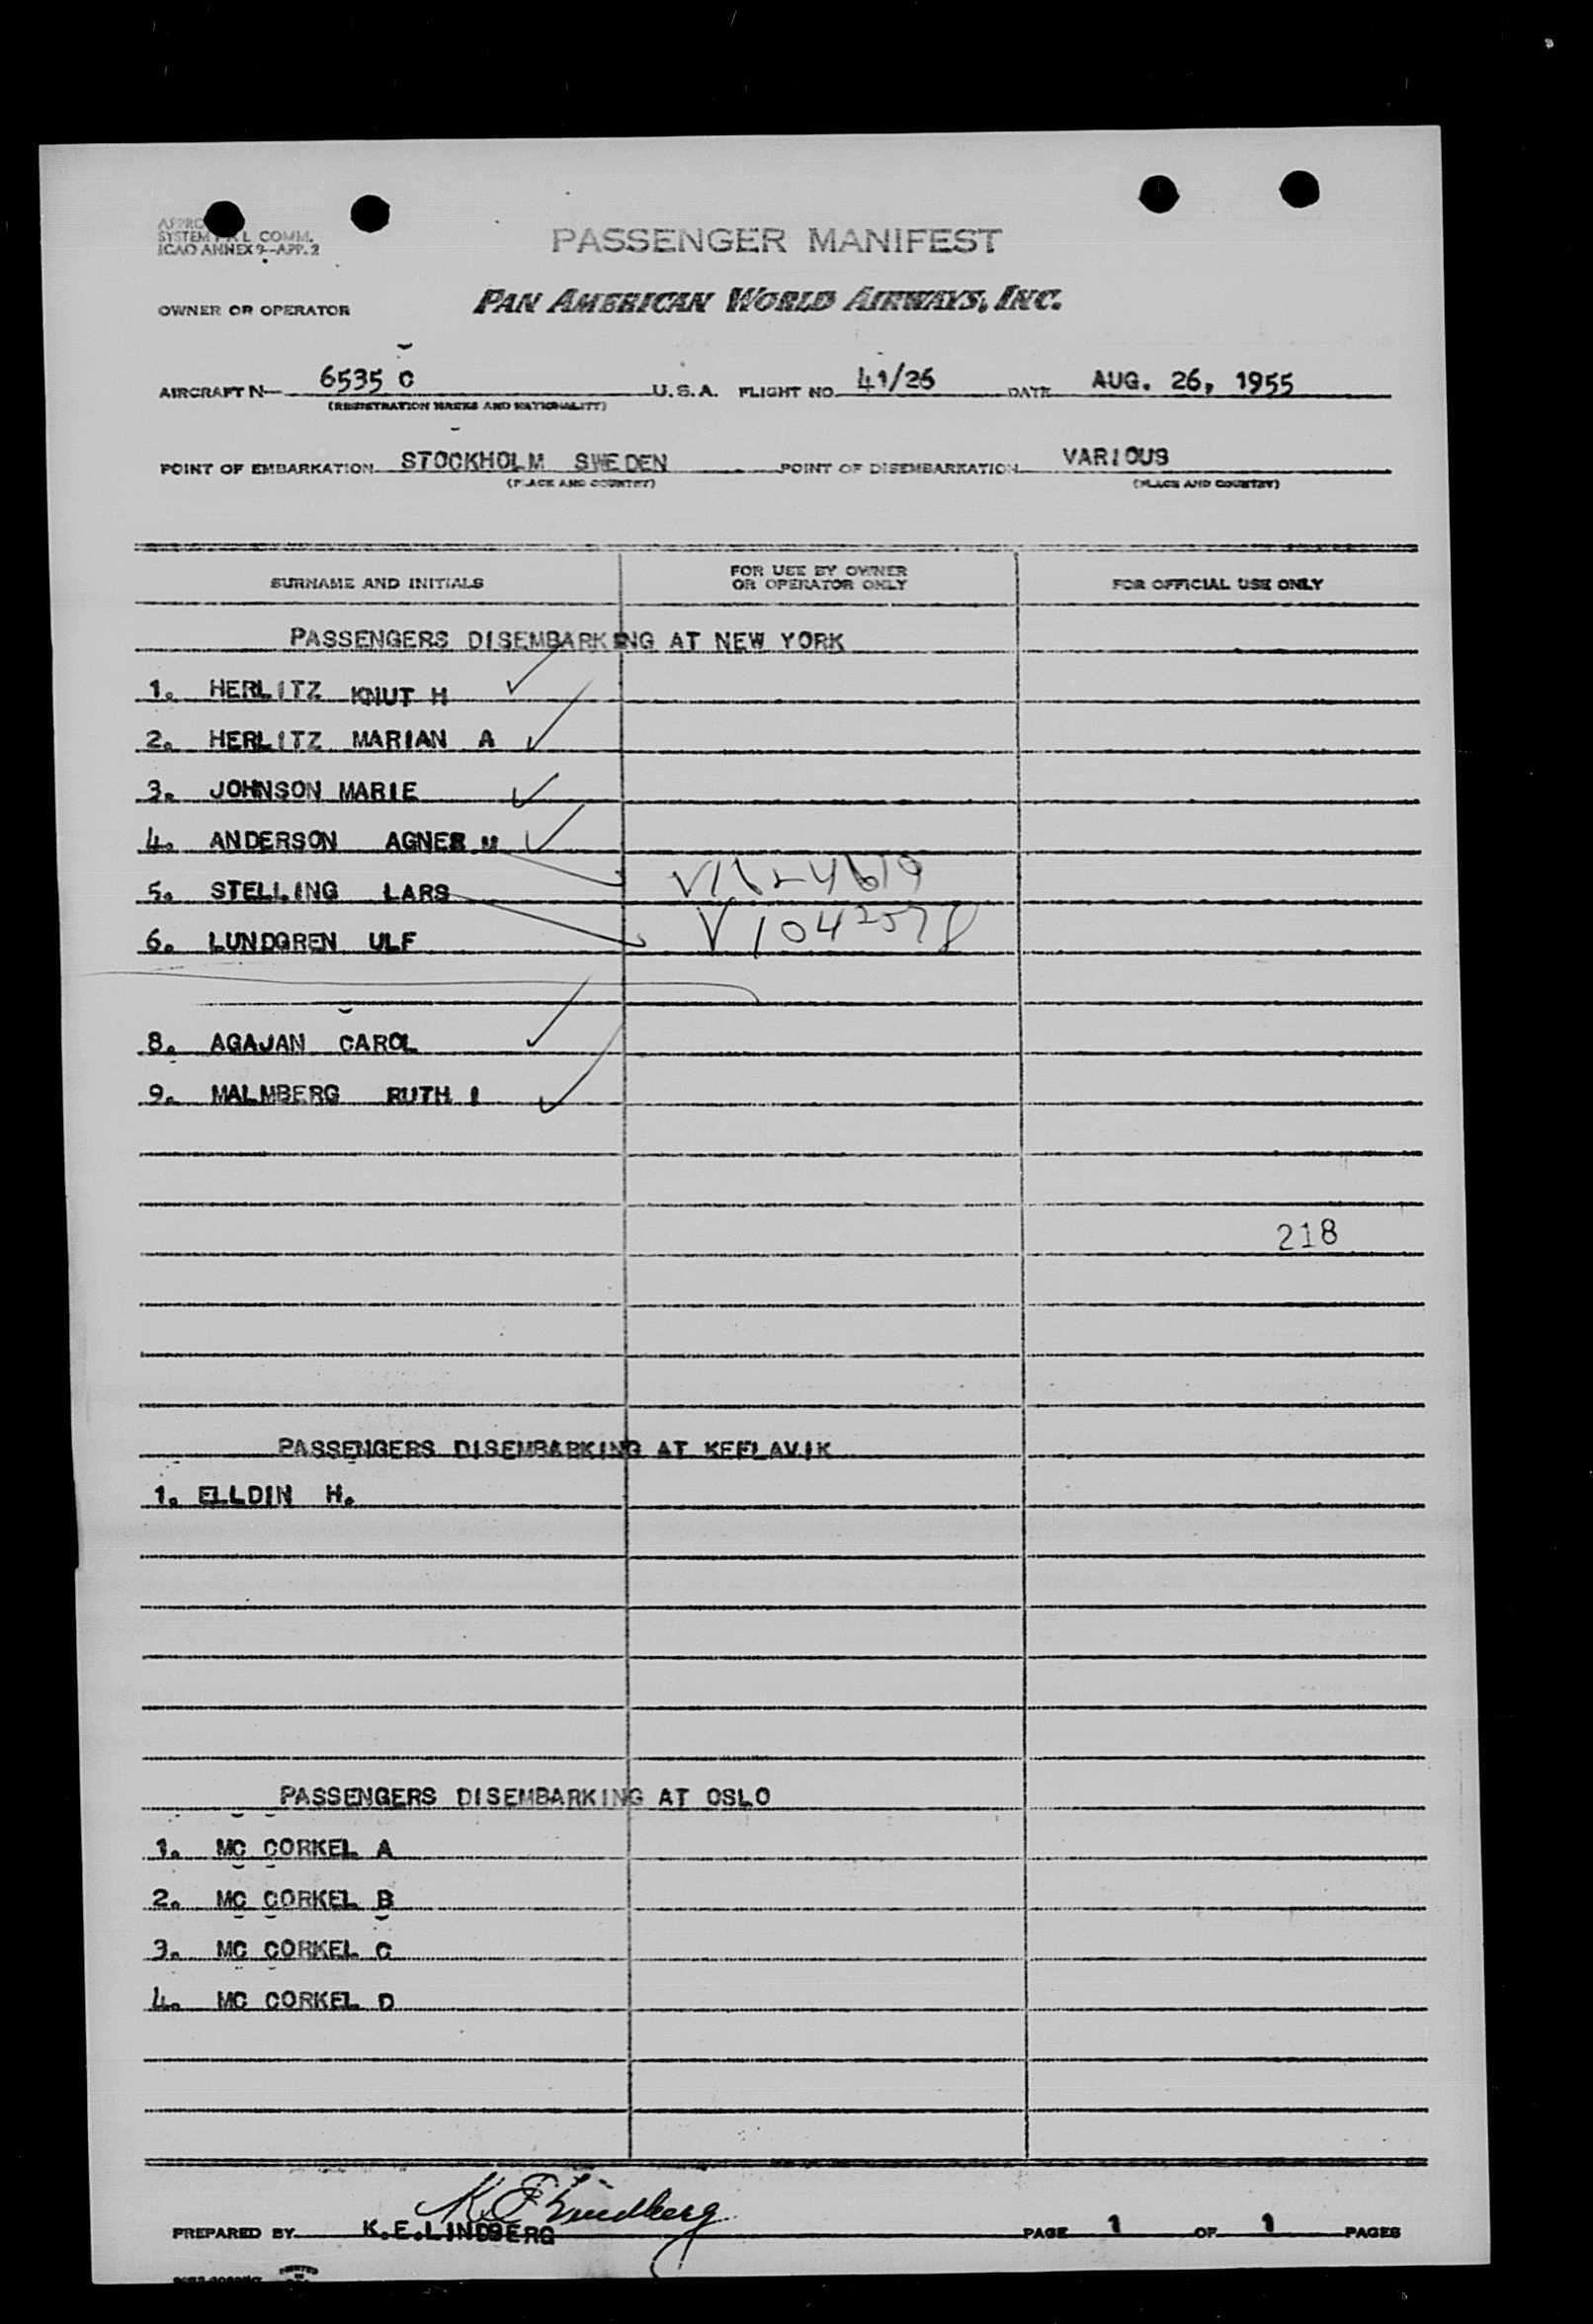 SYSTEM COMM.
ICAO ANNEX 9—APP. 2
PASSENGER MANIFEST
OWNER OR OPERATOR PAN AMERICAN WORLD AIRWAYS, INC.
AIRCRAFT N— 6535 C U.S.A. FLIGHT NO. 41/26 DATE AUG. 26, 1955
(REGISTRATION MARKS AND NATIONALITY)
POINT OF EMBARKATION STOCKHOLM SWEDEN POINT OF DISEMBARKATION VARIOUS
(PLACE AND COUNTRY) (PLACE AND COUNTRY)
SURNAME AND INITIALS FOR USE BY OWNER OR OPERATOR ONLY FOR OFFICIAL USE ONLY
PASSENGERS DISEMBARKING AT NEW YORK
1. HERLITZ KNUT H
2. HERLITZ MARIAN A
3. JOHNSON MARIE
4. ANDERSON AGNES M
5. STELLING LARS
6. LUNDGREN ULF
8. AGAJAN CAROL
9. MALMBERG RUTH I
218
PASSENGERS DISEMBARKING AT KEFLAVIK
1. ELLDIN H.
PASSENGERS DISEMBARKING AT OSLO
1. MC CORKEL A
2. MC CORKEL B
3. MC CORKEL C
4. MC CORKEL D
K E Lindberg
PREPARED BY K.E.LINDBERG PAGE 1 OF 1 PAGES